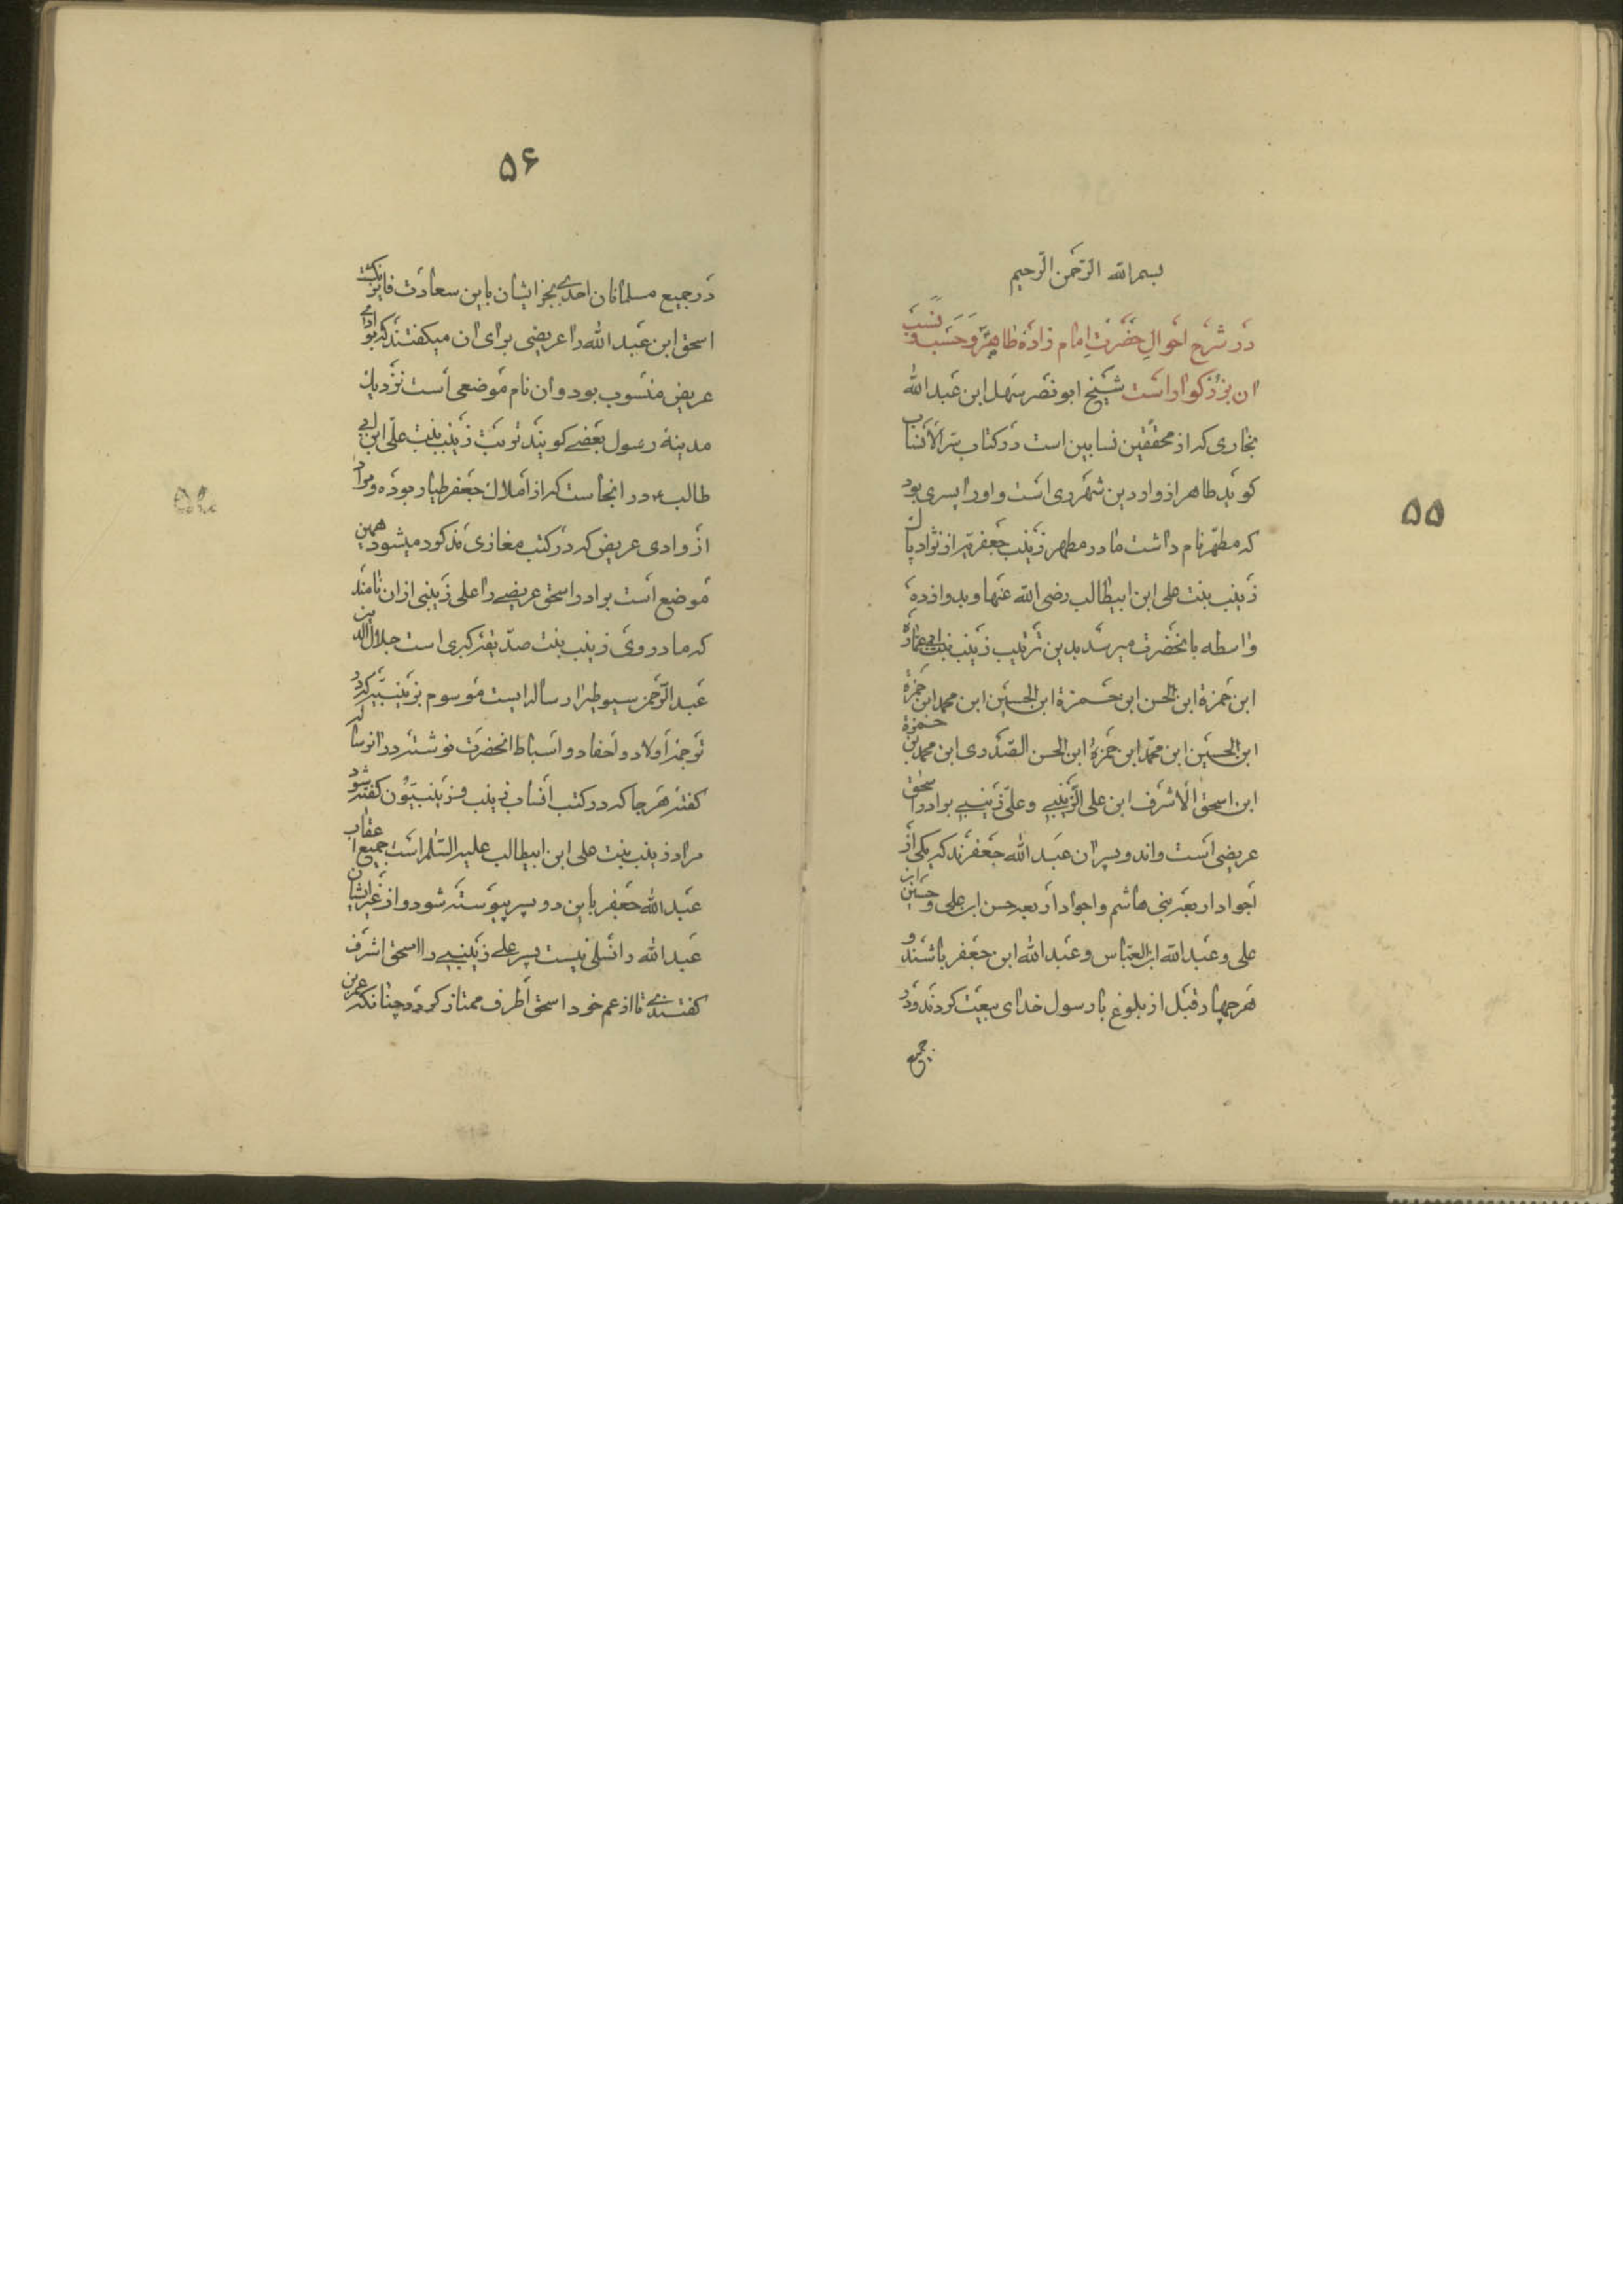 ۵۵
بسم الله الرحمن الرحیم
در شرح احوال حضرت امام زاده طاهر و حسب و نسب
ان بزرکوار است شیخ ابو نصر سهل ابن عبد الله
بخاری که از محققین نسابین است در کتاب سر الانساب
کوید طاهر از واردین شهر ری است و او را پسری بود
که مطهر نام داشت مادر مطهر زینب جعفریه از نژاد پاک
زینب بنت علی ابن ابیطالب رضی الله عنها و بدوازده
واسطه بانحضرت میرسد بدین ترتیب زینب بنت ابی عماره
ابن حمزة ابن الحسن ابن حمزة ابن الحسین ابن محمد ابن حمزة
ابن الحسین ابن محمد ابن حمزة ابن الحسن الصدری ابن محمد بن حمزة
ابن اسحق الاشرف ابن علی الزینبی و علی زینبی برادر اسحق
عریضی است و اندو پسران عبد الله جعفرند که یکی از
اجواد اربعه بنی هاشم و اجواد اربعه حسن ابن علی و حسین ابن
علی و عبد الله ابن العباس و عبد الله ابن جعفر باشند و
هر چهار قبل از بلوغ با رسول خدای بیعت کردند و در
جمیع
۵۶
در جمیع مسلمانان احدی بجز ایشان باین سعادت فایز نکشت
اسحق ابن عبد الله را عریضی برای ان میکفتند که بوادی
عریض منسوب بود و ان نام موضعی است نزدیک
مدینه رسول بعضی کویند تربت زینب بنت علی ابن ابی
طالب در انجاست که از املاک جعفر طیار بوده و مراد
از وادی عریض که در کتب مغازی مذکور میشود همین
موضع است برادر اسحق عریضی را علی زینبی از ان نامند
که مادر وی زینب بنت صدیقه کبری است جلال الدین
عبد الرحمن سیوطی را رساله ایست موسوم بزینبیه که در
ترجمه اولاد و احفاد و اسباط انحضرت نوشته در ان رساله
کفته هر جا که در کتب انساب زینب و زینبیون کفته شود
مراد زینب بنت علی ابن ابیطالب علیه السلام است جمیع اعقاب
عبد الله جعفر باین دو پسر پیوسته شود و از غیر ایشان
عبد الله را نسلی نیست پسر علی زینبی را اسحق اشرف
کفتندی تا از عم خود اسحق اطرف ممتاز کردد چنانکه عمر بن